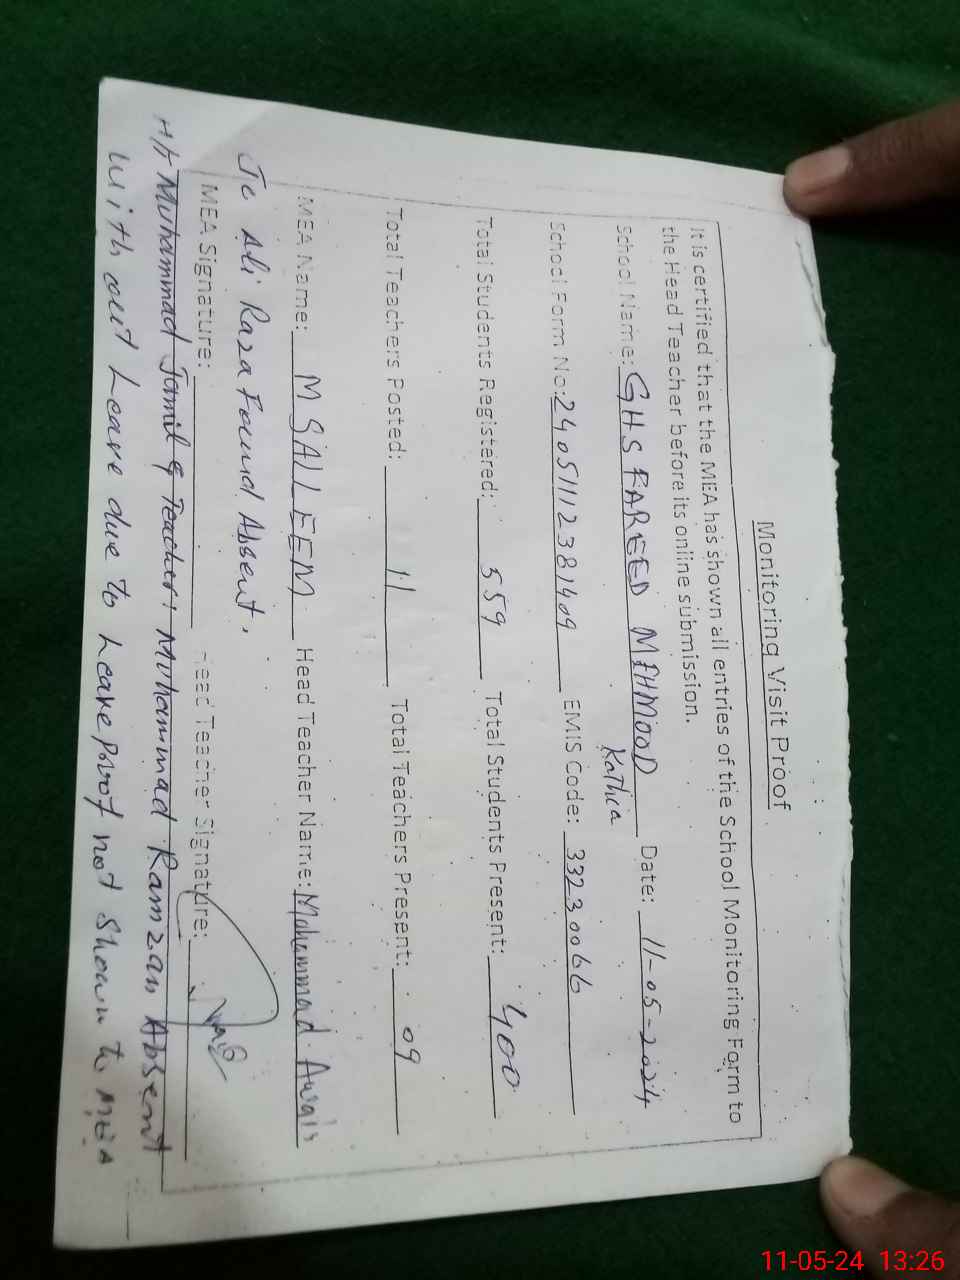 Monitoring Visit Proof
It is certified that the MEA has shown all entries of the School Monitoring Form to
the Head Teacher before its online submission.
School Name: GHS FAREED MEHMOOD Kathia Date: 11-05-2024
School Form No: 24051112381409 EMIS Code: 33230066
Total Students Registered: 559 Total Students Present: 400
Total Teachers Posted: 11 Total Teachers Present: 09
MEA Name: M SALEEM Head Teacher Name: Mohammad Awais
Ali Raza Found Absent.
MEA Signature: Head Teacher Signature:
Muhammad Jamil Teacher, Muhammad Ramzan Absent
with out Leave due to Leave Proof not Shown to MEA
11-05-24 13:26